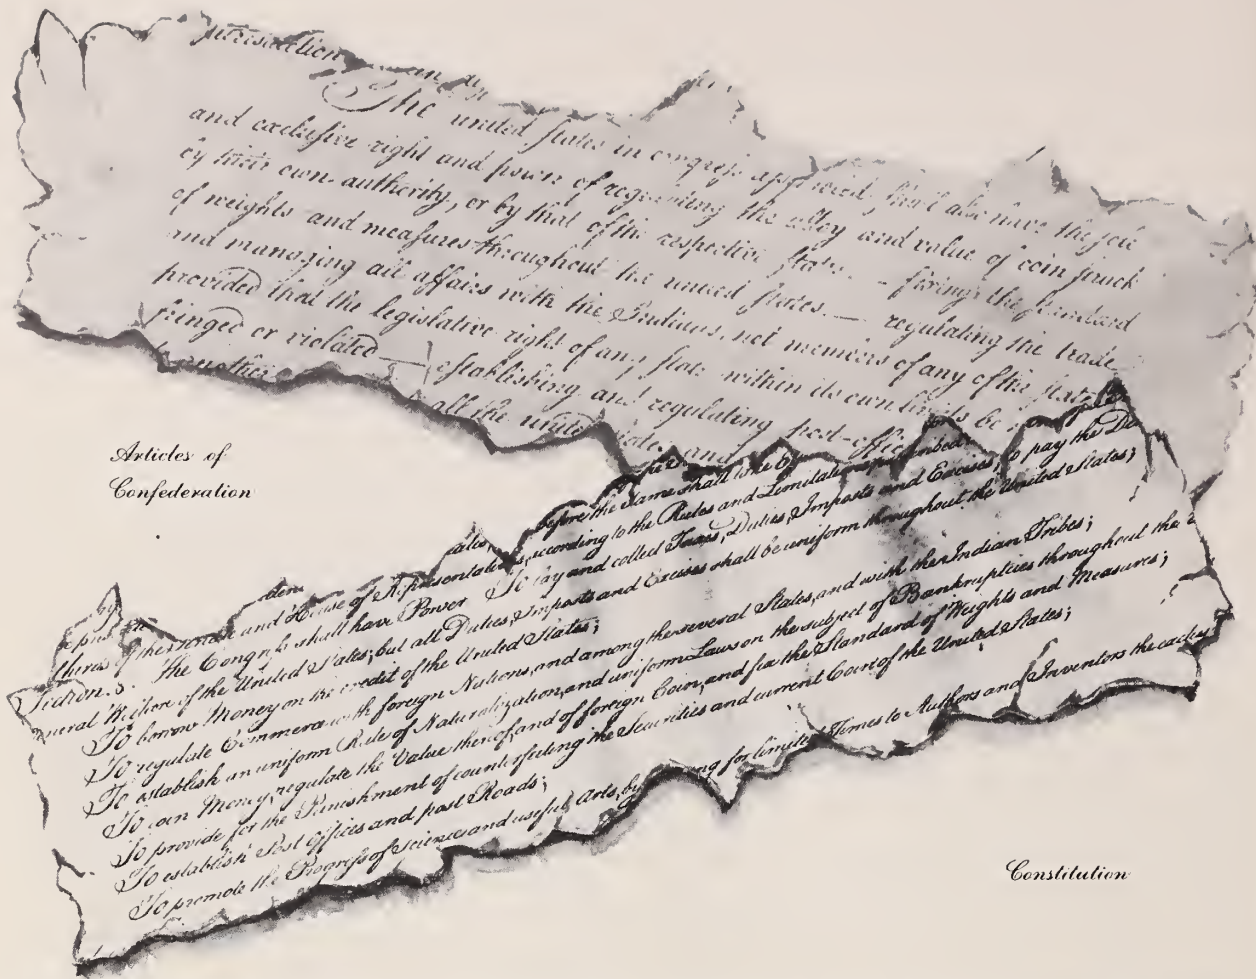 jurisdiction
The united states in congress assembled shall also have the sole
and exclusive right and power of regulating the alloy and value of coin struck
by their own authority, or by that of the respective states — fixing the standard
of weights and measures throughout the united states — regulating the trade
and managing all affairs with the Indians, not members of any of the states
provided that the legislative right of any state within its own limits be
fringed or violated — establishing and regulating post-offices
to another all the united states and
Articles of
Confederation
before the Same shall take
according to the Rules and Limitations
thirds of the Senate and House of Representatives,
Section. 8. The Congress shall have Power To lay and collect Taxes, Duties, Imposts and Excises, to pay the De
neral Welfare of the United States; but all Duties, Imposts and Excises shall be uniform throughout the United States;
To borrow Money on the credit of the United States;
To regulate Commerce with foreign Nations, and among the several States, and with the Indian Tribes;
To establish an uniform Rule of Naturalization, and uniform Laws on the subject of Bankruptcies throughout the
To coin Money, regulate the Value thereof, and of foreign Coin, and fix the Standard of Weights and Measures;
To provide for the Punishment of counterfeiting the Securities and current Coin of the United States;
To establish Post Offices and post Roads;
To promote the Progress of Science and useful Arts, by ng for limited Times to Authors and Inventors the
Constitution